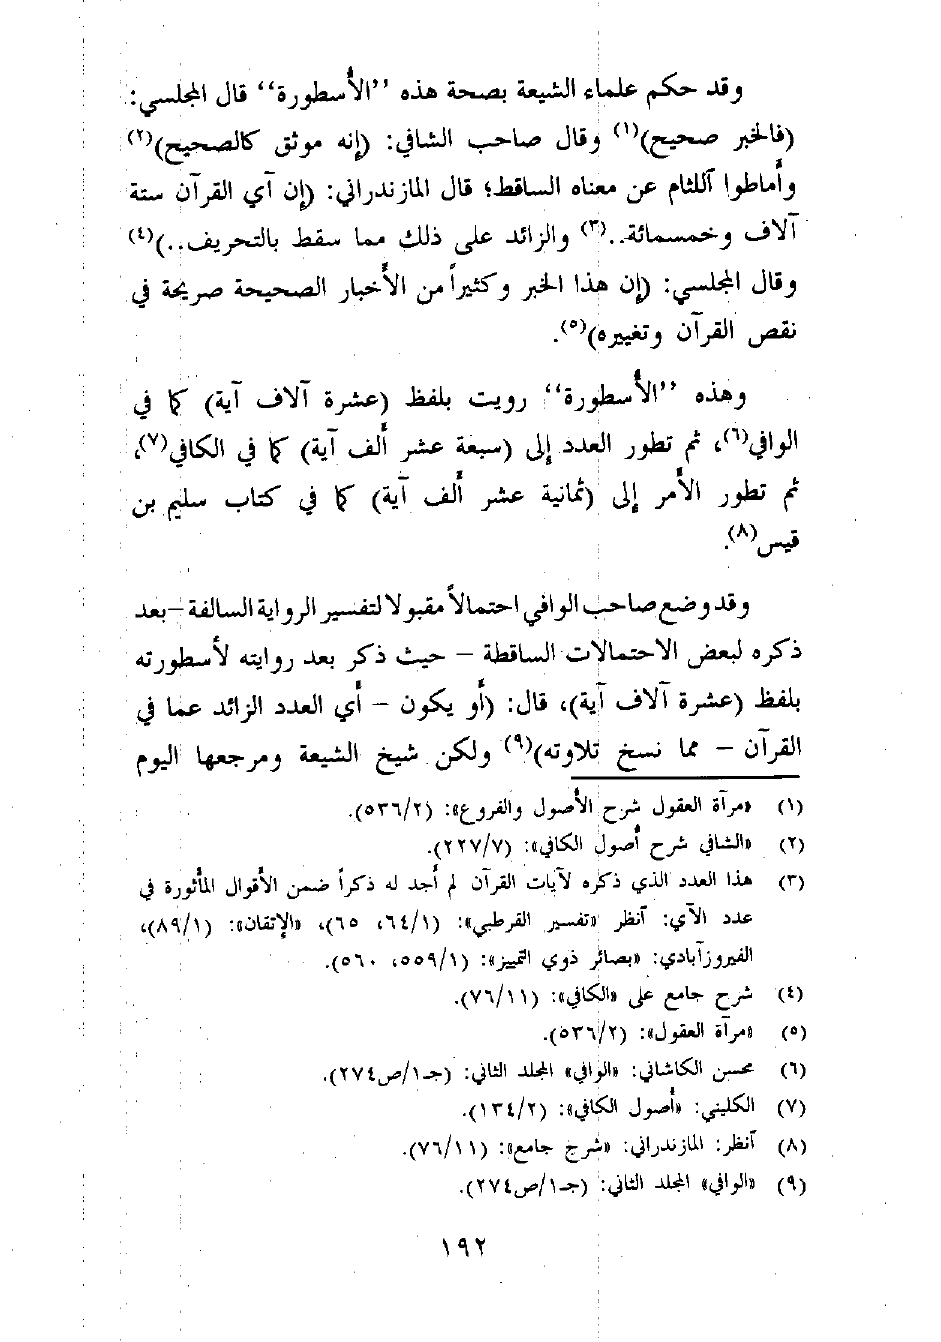 وقد حكم علماء الشيعة بصحة هذه ’’الأسطورة‘‘ قال المجلسي:
(فالخبر صحيح)(١) وقال صاحب الشافي: (إنه موثق كالصحيح)(٢)
وأماطوا آللثام عن معناه الساقط؛ قال المازندراني: (إن آي القرآن ستة
آلاف وخمسمائة..(٣) والزائد على ذلك مما سقط بالتحريف..)(٤)
وقال المجلسي: (إن هذا الخبر وكثيراً من الأخبار الصحيحة صريحة في
نقص القرآن وتغييره)(٥).
وهذه ’’الأسطورة‘‘ رويت بلفظ (عشرة آلاف آية) كما في
الوافي(٦)، ثم تطور العدد إلى (سبعة عشر ألف آية) كما في الكافي(٧)،
ثم تطور الأمر إلى (ثمانية عشر ألف آية) كما في كتاب سليم بن
قيس(٨).
وقد وضع صاحب الوافي احتمالاً مقبولا لتفسير الرواية السالفة –بعد
ذكره لبعض الاحتمالات الساقطة – حيث ذكر بعد روايته لأسطورته
بلفظ (عشرة آلاف آية)، قال: (أو يكون – أي العدد الزائد عما في
القرآن – مما نسخ تلاوته)(٩) ولكن شيخ الشيعة ومرجعها اليوم
(١) «مرآة العقول شرح الأصول والفروع»: (٥٣٦/٢).
(٢) «الشافي شرح أصول الكافي»: (٢٢٧/٧).
(٣) هذا العدد الذي ذكره لآيات القرآن لم أجد له ذكراً ضمن الأقوال المأثورة في
عدد الآي: آنظر «تفسير القرطبي»: (٦٤/١، ٦٥)، «الإتقان»: (٨٩/١)،
الفيروزآبادي: «بصائر ذوي التمييز»: (٥٥٩/١، ٥٦٠).
(٤) شرح جامع على «الكافي»: (٧٦/١١).
(٥) «مرآة العقول»: (٥٣٦/٢).
(٦) محسن الكاشاني: «الوافي» المجلد الثاني: (جـ١/ص٢٧٤).
(٧) الكليني: «أصول الكافي»: (١٣٤/٢).
(٨) آنظر: المازندراني: «شرح جامع»: (٧٦/١١).
(٩) «الوافي» المجلد الثاني: (جـ١/ص٢٧٤).
١٩٢